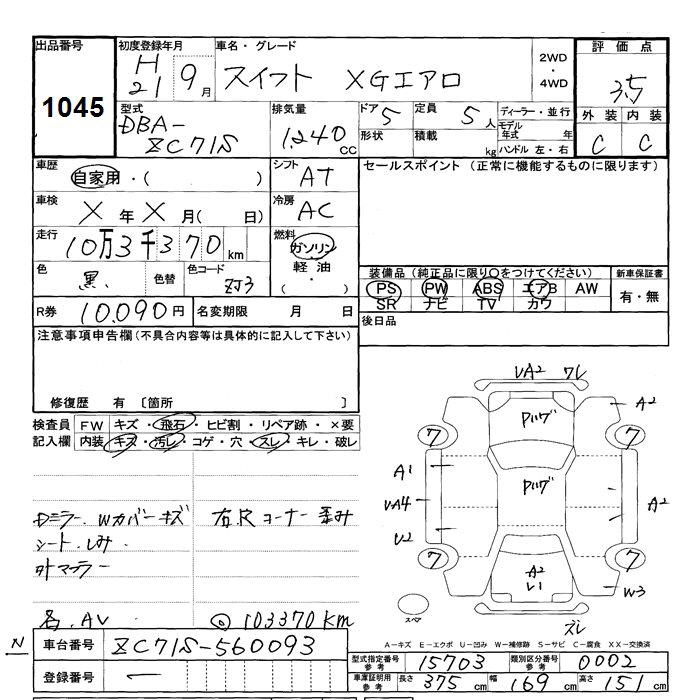 出品番号
1045
初度登録年月
H21 9月
車名・グレード
スイフト XGエアロ
2WD・4WD
評価点
3.5
外装 内装
C C
型式
DBA-ZC71S
排気量
1.240cc
ドア 5
形状
定員 5人
積載 kg
ディーラー・並行
モデル年式 年
ハンドル 左・右
車歴
自家用・( )
シフト
AT
セールスポイント (正常に機能するものに限ります)
車検
X年X月( 日)
冷房
AC
走行
10万3千370km
燃料
ガソリン
軽油
( ・ )
色
黒
色替
色コード
ZJ3
装備品 (純正品に限り〇をつけてください)
PS PW ABS エアB AW
SR ナビ TV カワ
新車保証書
有・無
R券 10.090円
名変期限 月 日
後日品
注意事項申告欄(不具合内容等は具体的に記入して下さい)
修復歴 有 〔箇所 〕
検査員記入欄
FW キズ・飛石・ヒビ割・リペア跡・×要
内装 キズ・汚レ・コゲ・穴・スレ・キレ・破レ
Dミラー.Wカバーキズ
右Rコーナー歪み
シート.しみ.
外マフラー
名.AV
◎103370Km
VA2 ワレ
A2
7 7
Pハゲ
A1
VA4
Pハゲ
A2
U2
7 7
A2
レ1
W3
スペア
ズレ
A-キズ E-エクボ U-凹み W-補修跡 S-サビ C-腐食 XX-交換済
N
車台番号 ZC71S-560093
登録番号 -
型式指定番号参考 15703
類別区分番号参考 0002
車庫証明用参考 長さ 375cm 幅 169cm 高さ 151cm